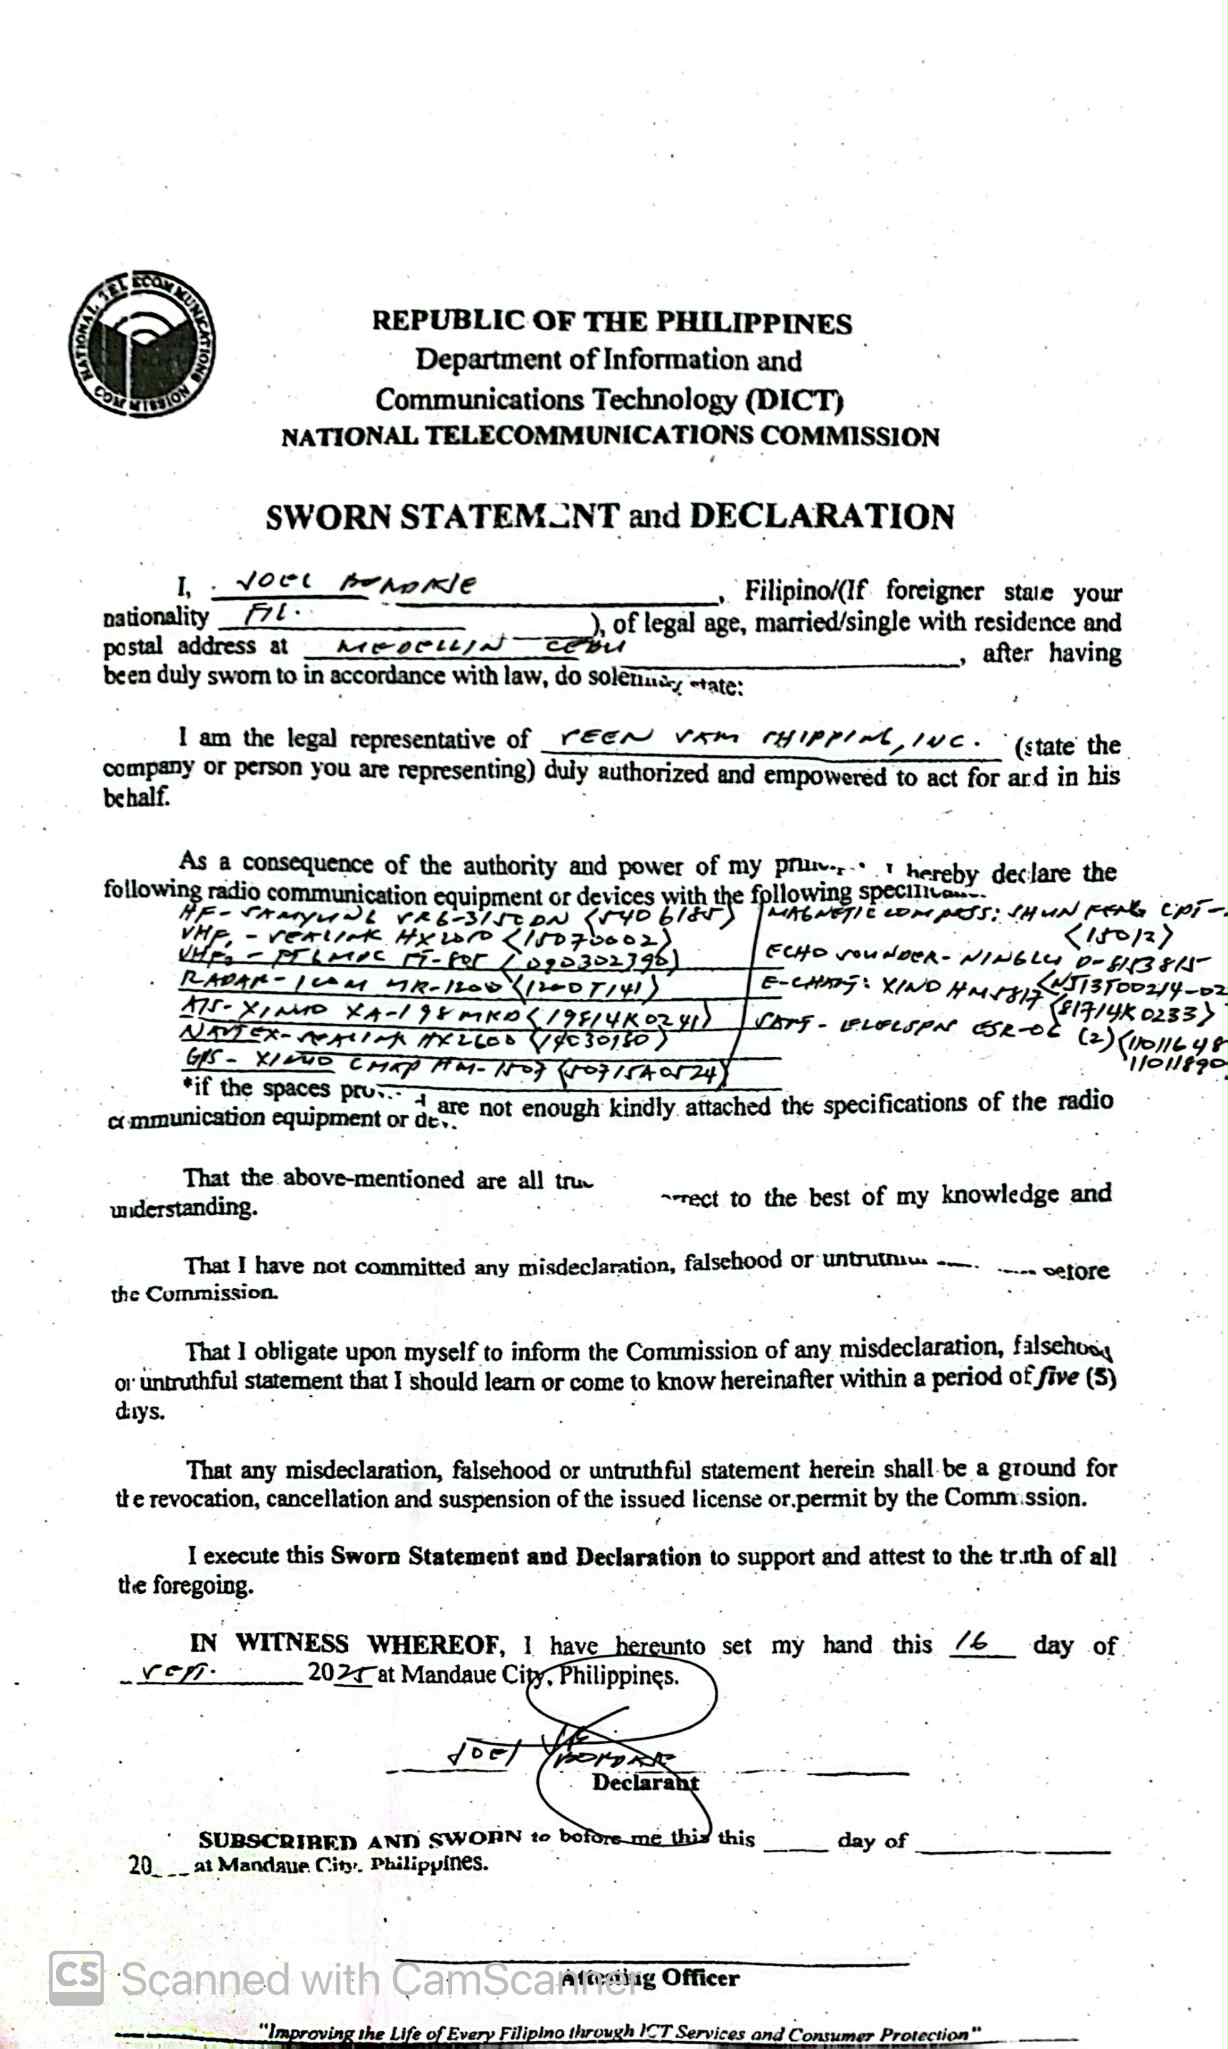 NATIONAL TELECOMMUNICATIONS COMMISSION
REPUBLIC OF THE PHILIPPINES
Department of Information and
Communications Technology (DICT)
NATIONAL TELECOMMUNICATIONS COMMISSION
SWORN STATEMENT and DECLARATION
I, JOEL , Filipino/(If foreigner state your
nationality FIL. ), of legal age, married/single with residence and
postal address at MEDELLIN CEBU , after having
been duly sworn to in accordance with law, do state:
I am the legal representative of SHIPPING, INC. (state the
company or person you are representing) duly authorized and empowered to act for and in his
behalf.
As a consequence of the authority and power of my I hereby declare the
following radio communication equipment or devices with the following
HF - SAMYUNG (5406185)
VHF1 - (15070002)
VHF2 - (090302390)
RADAR - ICOM MR-1200 (1200T141)
AIS - XINUO XA-198 MKD (19814K0241)
NAVTEX - (14030180)
GPS - XINUO HM-1507 (50715A0524)
MAGNETIC COMPASS: SHUN FENG CPT-
(15012)
ECHO SOUNDER - NINGLU
E-CHART: XINUO HM5817 (81714K0233)
SART - (2) (11011648
11011890
*if the spaces are not enough kindly attached the specifications of the radio
communication equipment or
That the above-mentioned are all to the best of my knowledge and
understanding.
That I have not committed any misdeclaration, falsehood or before
the Commission.
That I obligate upon myself to inform the Commission of any misdeclaration, falsehood
or untruthful statement that I should learn or come to know hereinafter within a period of five (5)
days.
That any misdeclaration, falsehood or untruthful statement herein shall be a ground for
the revocation, cancellation and suspension of the issued license or permit by the Commission.
I execute this Sworn Statement and Declaration to support and attest to the truth of all
the foregoing.
IN WITNESS WHEREOF, I have hereunto set my hand this 16 day of
SEPT. 2025 at Mandaue City, Philippines.
JOEL
Declarant
SUBSCRIBED AND SWORN to before me this this ____ day of ____
20___ at Mandaue City. Philippines.
Attesting Officer
CS Scanned with CamScanner
"Improving the Life of Every Filipino through ICT Services and Consumer Protection"